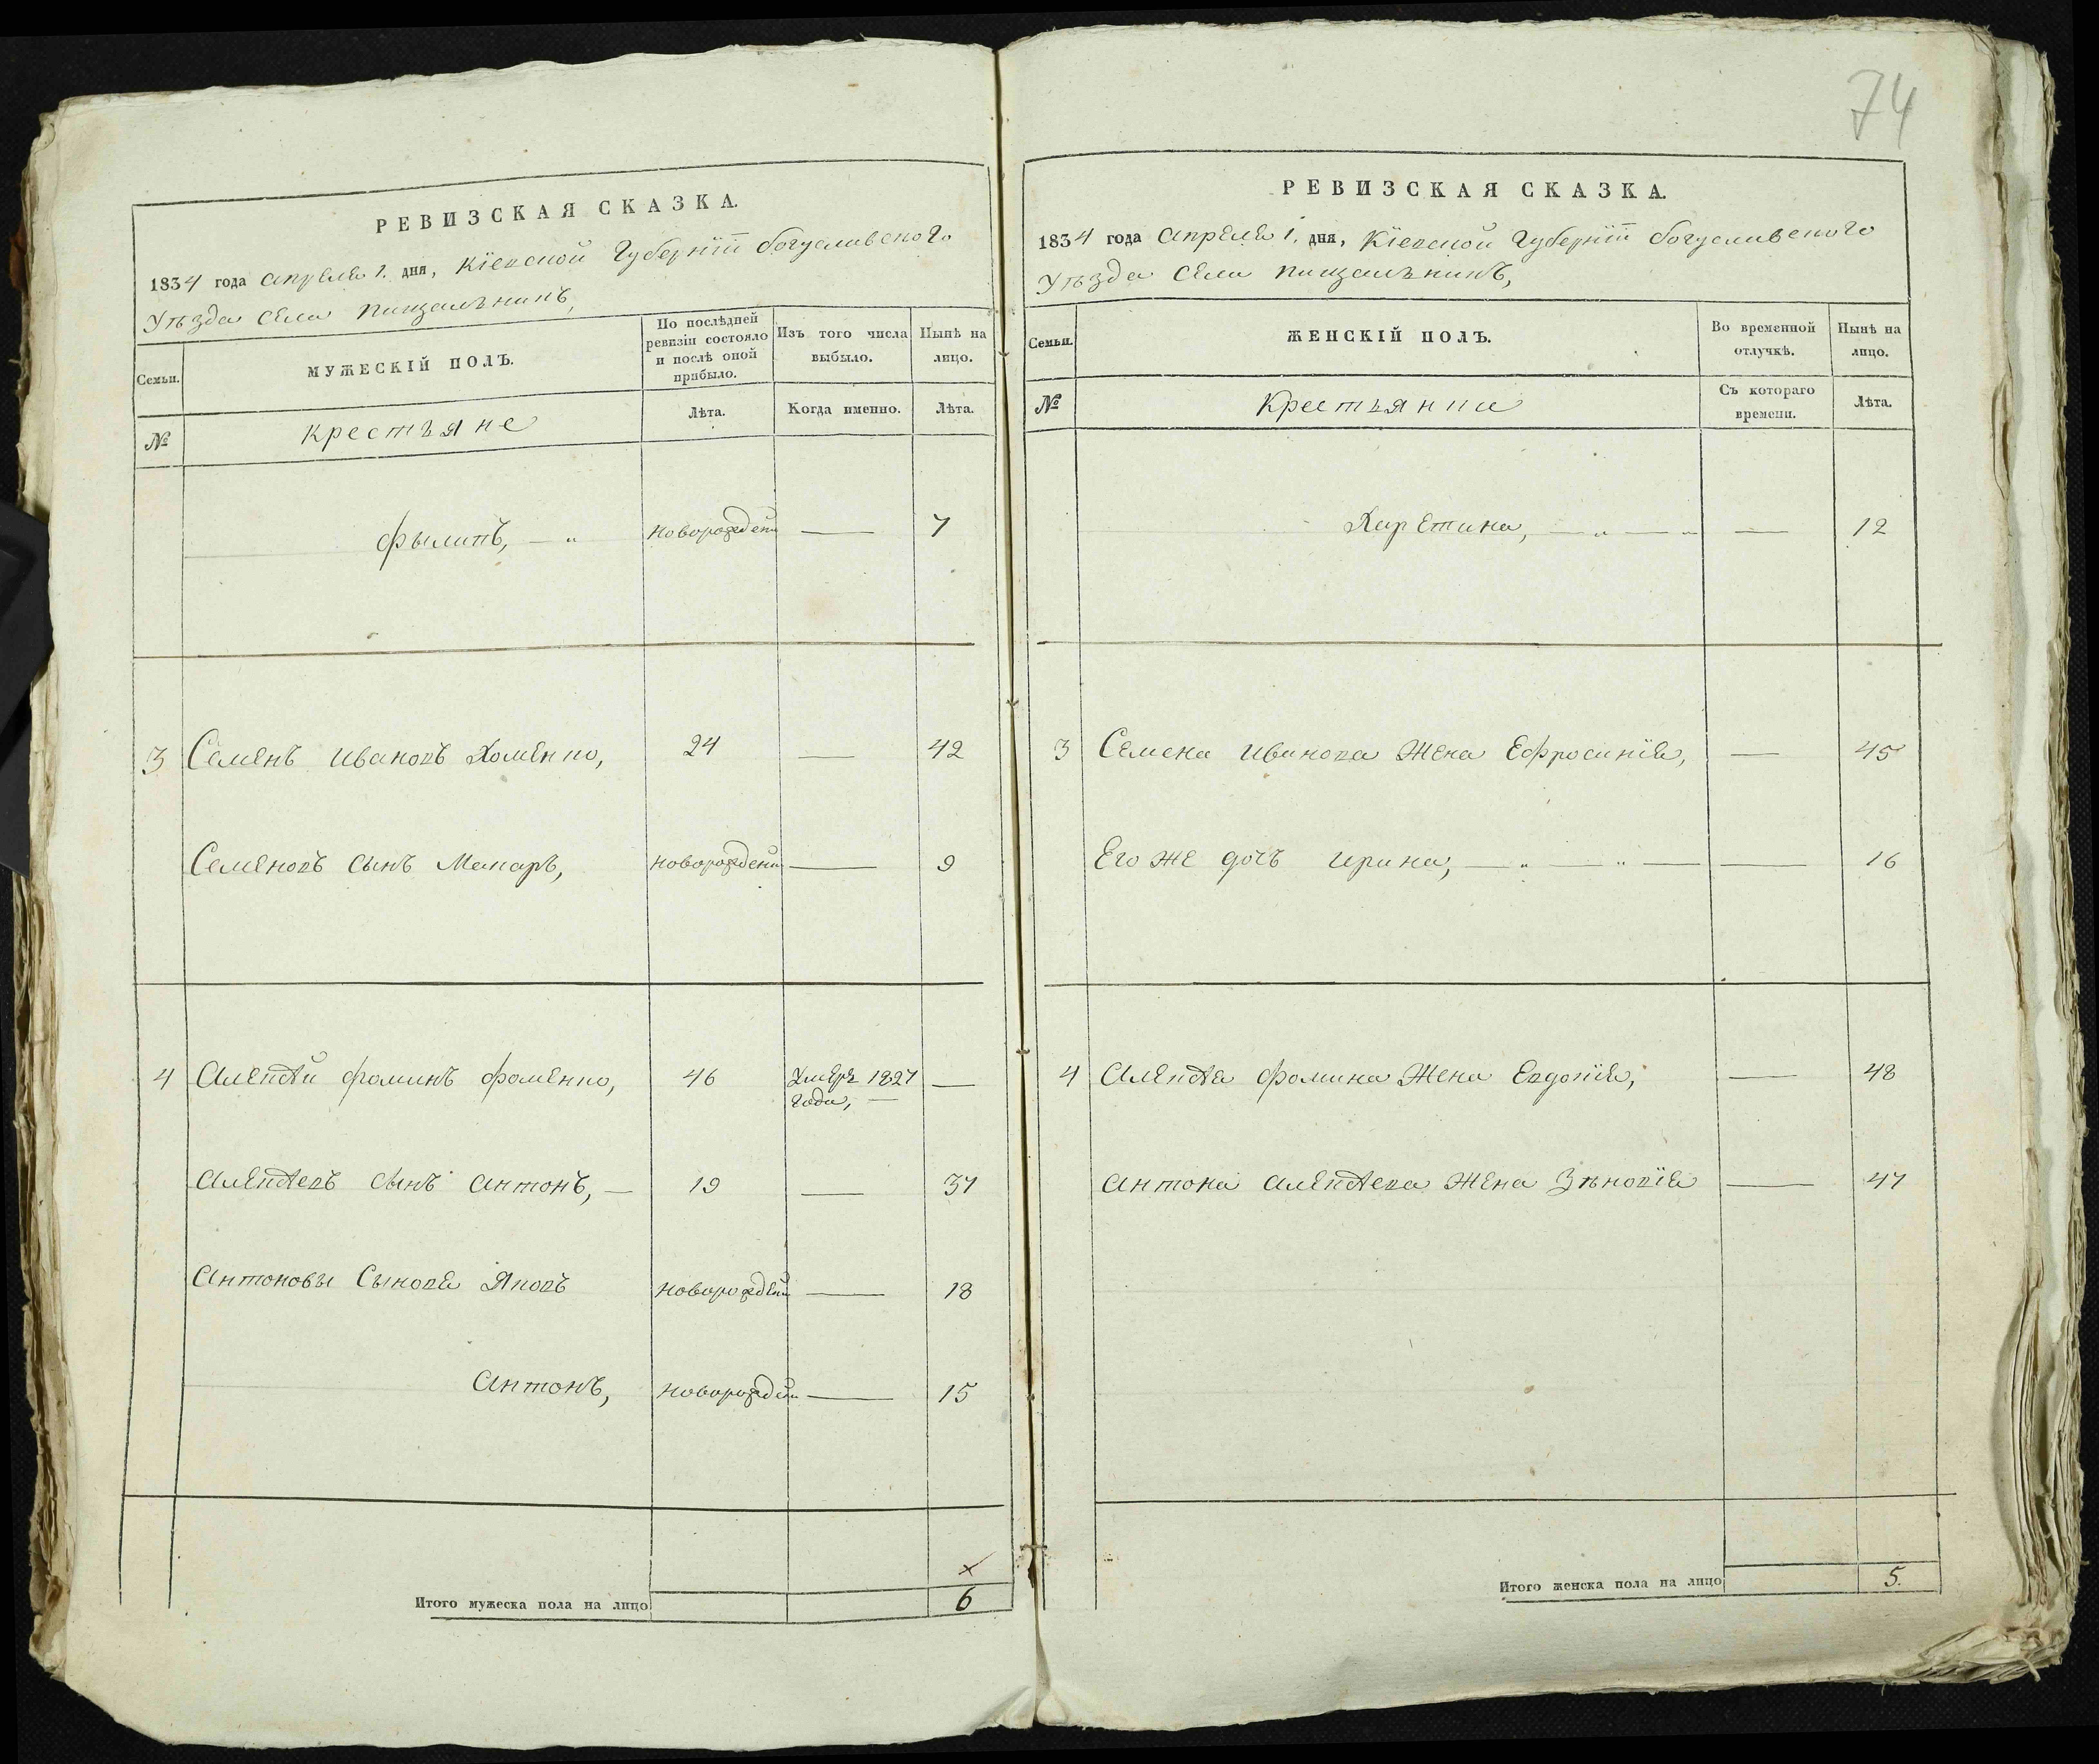 74
РЕВИЗСКАЯ СКАЗКА.
1834 года апреля 1. дня, Кіевской Губерніи богуславского
Уѣзда села пищальникъ,
Семьи.
МУЖЕСКІЙ ПОЛЪ.
По послѣдней ревизіи состояло и послѣ оной прибыло.
Изъ того числа выбыло.
Нынѣ на лицо.
№
крестьяне
Лѣта.
Когда именно.
Лѣта.
Филипъ, — " новорожден — 7
3 Семенъ Ивановъ Хоменко, 24 — 42
Семеновъ сынъ Макаръ, новорожден — 9
4 Алексѣй фоминъ фоменко, 46 Умеръ 1827 —
года, —
Алексѣевъ сынъ антонъ, — 19 — 37
Антоновы Сыновя Яковъ новорожден — 18
Антонъ, новорожден — 15
×
Итого мужеска пола на лицо 6
РЕВИЗСКАЯ СКАЗКА.
1834 года апреля 1. дня, Кіевской Губерніи богуславского
Уѣзда села пищальникъ,
Семьи.
ЖЕНСКІЙ ПОЛЪ.
Во временной отлучкѣ.
Нынѣ на лицо.
№
Крестьянки
Съ котораго времени.
Лѣта.
Харетина, — " — " — 12
3 Семена Иванова Жена Ефросинія, — 45
Его же дочь ирина, — " — " — — 16
4 Алексѣя фомина Жена Евдокія, — 48
Антона алексѣева Жена Зѣновія — 47
Итого женска пола на лицо 5.